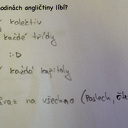 hodinách angličtiny líbí?
kolektiv
každé třídy
1.D
každé kapitoly
na všechno (Poslech,